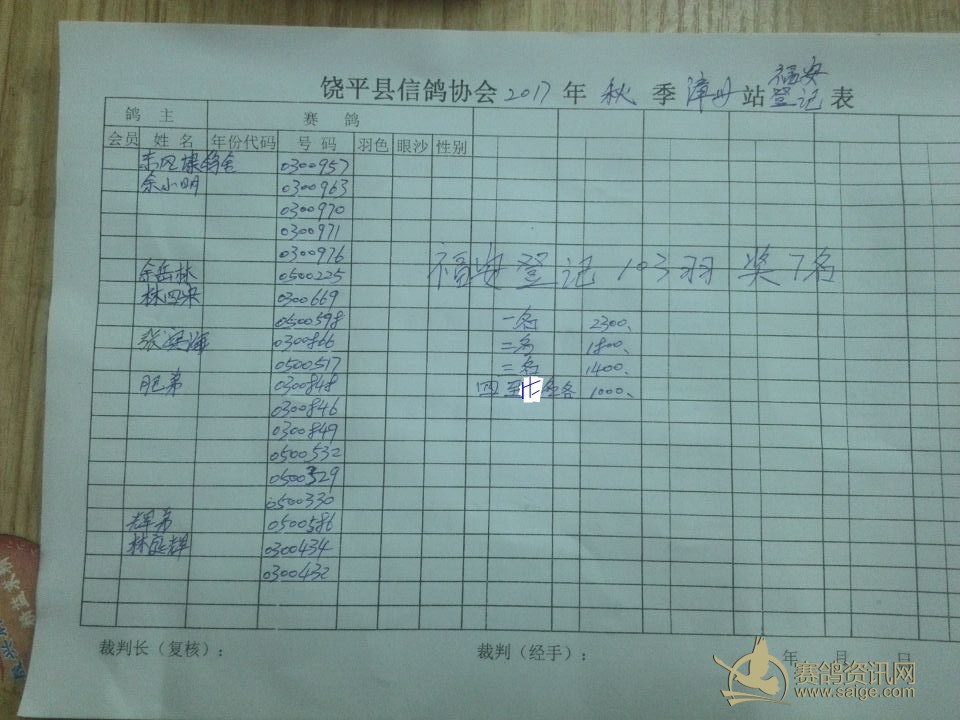 饶平县信鸽协会2017年秋季漳丹站福安登记表
鸽主 赛鸽
会员 姓名 年份代码 号码 羽色 眼沙 性别
鸽舍 0300957
余小明 0300963
0300970
0300971
0300976
福安登记103羽 奖7名
余岳林 0500225
林四 0300669
0500598 一名 2300、
张 海 0300866 二名 1800、
0500517 三名 1400、
肥弟 0300848 四至七名各 1000、
0300846
0300849
0500532
0500329
0500330
辉弟 0500586
林庭辉 0300434
0300432
裁判长（复核）： 裁判（经手）： 年 月 日
赛鸽资讯网
www.saige.com